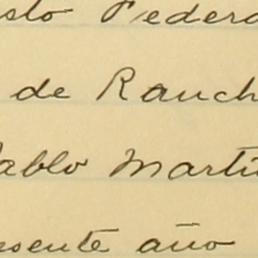 sto Federa
de Ranch
ablo Martí
esente año